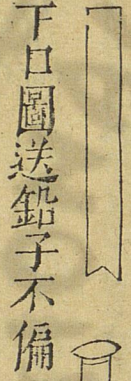 下口圖送鉛子不偏